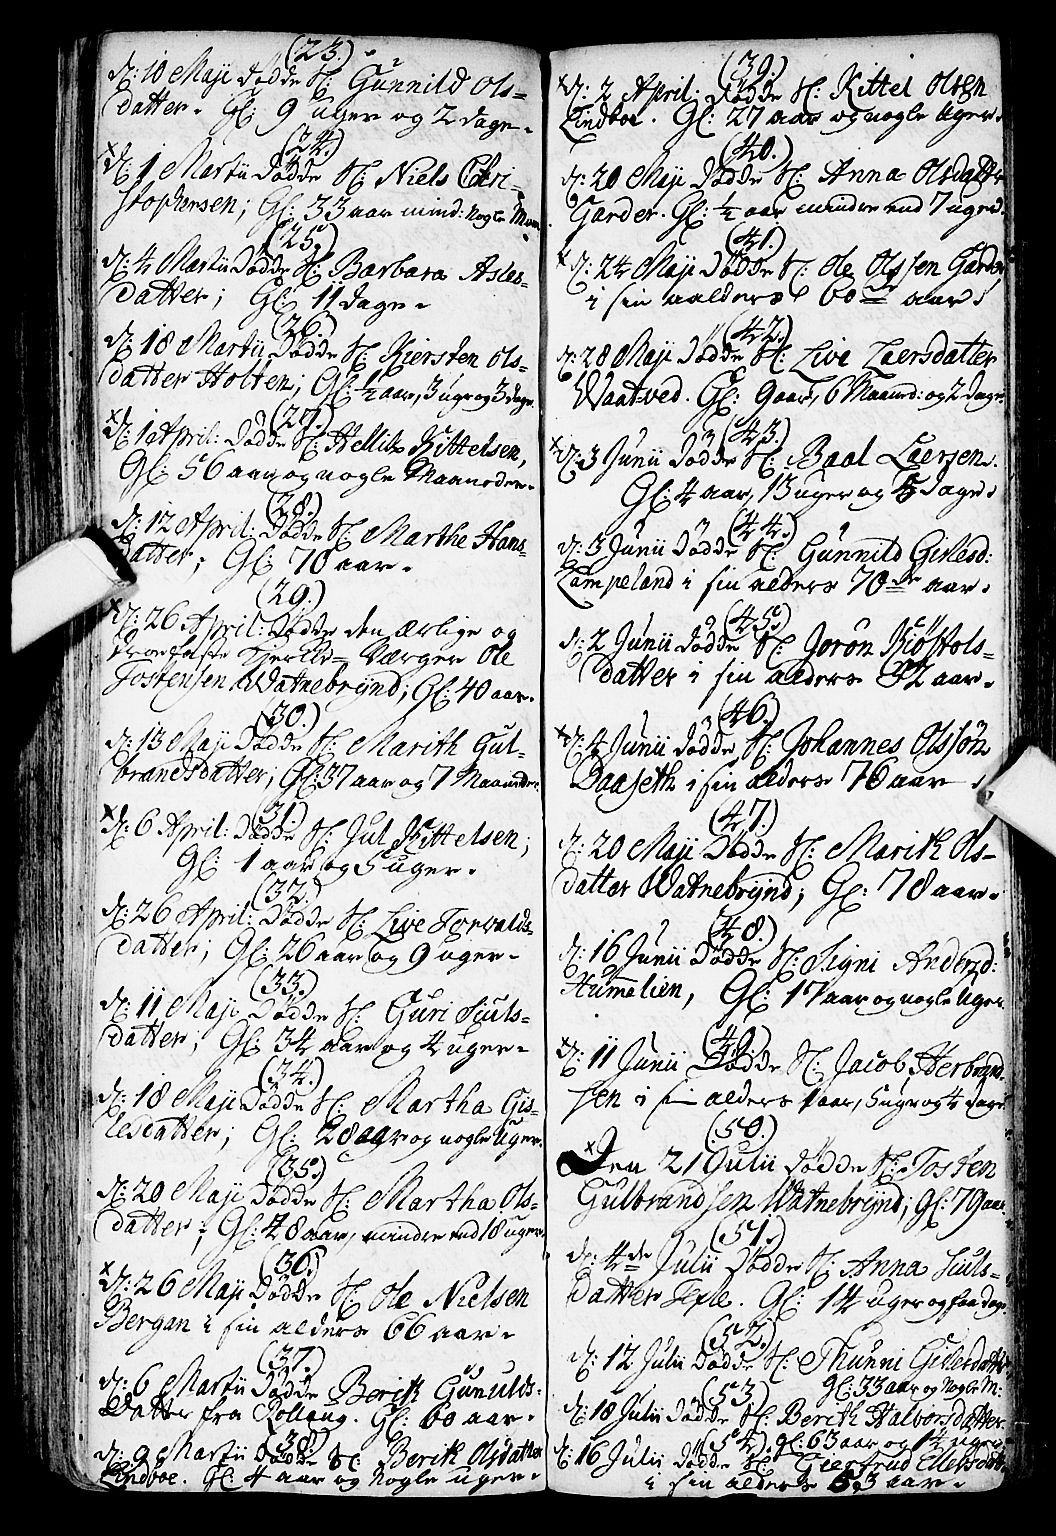 (23.)
D: 10 Maji Dödde N: Gunnild Ols=
datter. Gl: 9 uger og 2 dage.
(24.)
D: 1 Martii Dödde N: Niels Chri=
stophersen; Gl: 33 aar mind: nogle
(25.)
D: 4 Martii Dödde N: Barbara Asles=
datter; Gl: 11 dage.
(26.)
D: 18 Martii Dödde N: Kiersten Ols=
datter Holten; Gl: ½ aar, 3 uger og 3 dage.
(27.)
D: 1 April: Dödde N: Kittelsen,
Gl: 56 aar og nogle Maaneder.
(28.)
D: 12 April: Dödde N: Marthe Hans=
datter; Gl: 70 aar.
(29.)
D: 26 April: Dödde den ærlige og
Værger Ole
Tostensen Watnebrynd; Gl: 40 aar.
(30.)
D: 13 Maji Dödde N: Marith Gul=
brandsdatter; Gl: 37 aar og 7 Maaneder.
(31.)
D: 6 April: Dödde N: Jul Kittelsen;
Gl: 1 aar og 5 uger.
(32.)
D: 26 April: Dödde N: Live Torvalds=
datter; Gl: 26 aar og 9 uger.
(33.)
D: 11 Maji Dödde N: Guri Juuls=
datter; Gl: 34 aar og 4 uger.
(34.)
D: 18 Maji Dödde N: Martha Gis=
lesdatter; Gl: 28 aar og nogle Uger.
(35.)
D: 20 Maji Dödde N: Martha Ols=
datter; Gl: 48 aar, mindre end 18 uger.
(36.)
D: 26 Maji Dödde N: Ole Nielsen
Bergan i sin alders 66 aar.
(37.)
D: 6 Martii Dödde Berith Gunulds=
Datter fra Gl: 60 aar.
(38.)
D: 9 Martii Dödde N: Berith Olsdatter
Lindboe. Gl: 4 aar og nogle uger.
(39.)
D: 2 April: Dödde N: Kittel Olsen
Lindboe. Gl: 27 aar og nogle Uger.
(40.)
D: 20 Maji Dödde N: Anna Olsdatter
Garder. Gl: ½ aar mindre end 7 uger.
(41.)
D: 24 Maji Dödde N: Ole Olssen Garder
i sin aalders 60de aar.
(42.)
D: 28 Maji Dödde N: Live Laersdatter
Waatved. Gl: 9 aar, 6 Maaned: og 2 dage.
(43.)
D: 3 Junii Dödde N: Laersen.
Gl: 4 aar, 13 uger og 5 dage.
(44.)
D: 3 Junii Dödde N: Gunnild Gislesd:
Lampeland i sin alders 70de aar.
(45.)
D: 2 Junii Dödde N: Jorön Kiöstols=
datter i sin alders 82 aar.
(46.)
D: 4 Junii Dödde N: Johannes Olssön
Daaseth i sin alders 76 aar
(47.)
D: 20 Maji Dödde N: Marith Ols=
datter Watnebrynd; Gl: 78 aar.
(48.)
D: 16 Junii Dödde N: Signi Andersd:
Hummelien, Gl: 17 aar og nogle Uger
(49.)
D: 11 Junii Dödde N: Jacob Herbrand
sen i sin alders 1 aar, 5 uger og 4 dage
(50.)
Den 21 Julii Dödde N: Tosten
Gulbrandssen Watnebrynd; Gl: 79 aar
(51.)
D: 4de Julii Dödde N: Anna Juuls=
datter Teple. Gl: 14 uger og faa dage
(52.)
D: 12 Julii Dödde N: Thunni Gislesdatter
Gl: 33 aar og Nogle M:
(53.)
D: 18 Julii Dödde N: Berith Halvorsdatter
Gl: 63 aar og 14 uger
(54.)
D: 16 Julii Dödde N: Giertrud
i sin alders 63 aar.